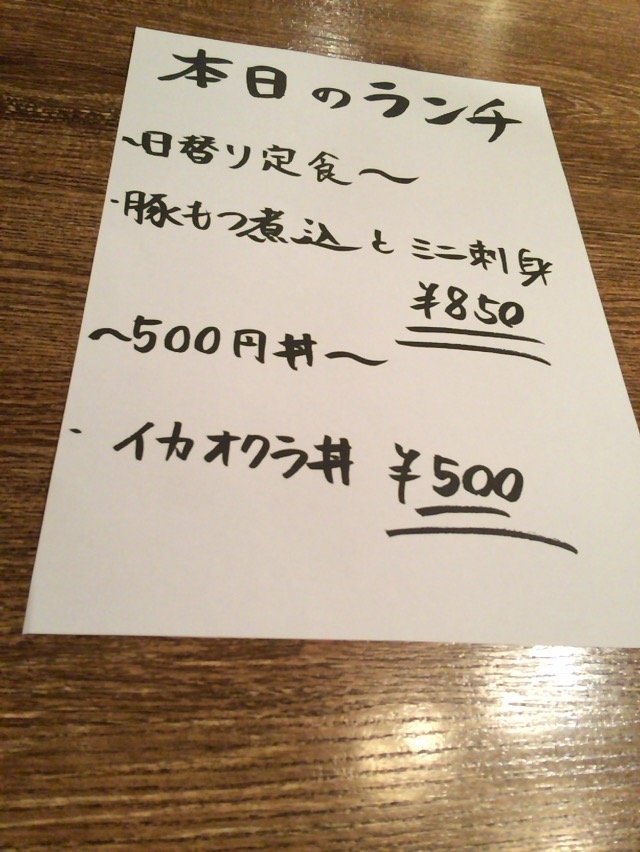 本日のランチ
~日替り定食~
・豚もつ煮込とミニ刺身
¥850
~500円丼~
・イカオクラ丼 ¥500